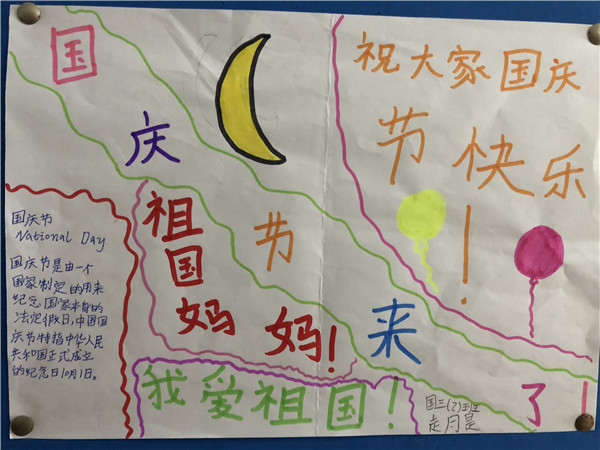 国庆节来了!
祝大家国庆
节快乐!
国庆节
National Day
国庆节是由一个
国家制定的用来
纪念国家本身的
法定假日,中国国
庆节特指中华人民
共和国正式成立
的纪念日10月1日。
祖国妈妈!
我爱祖国!
国三(2)班